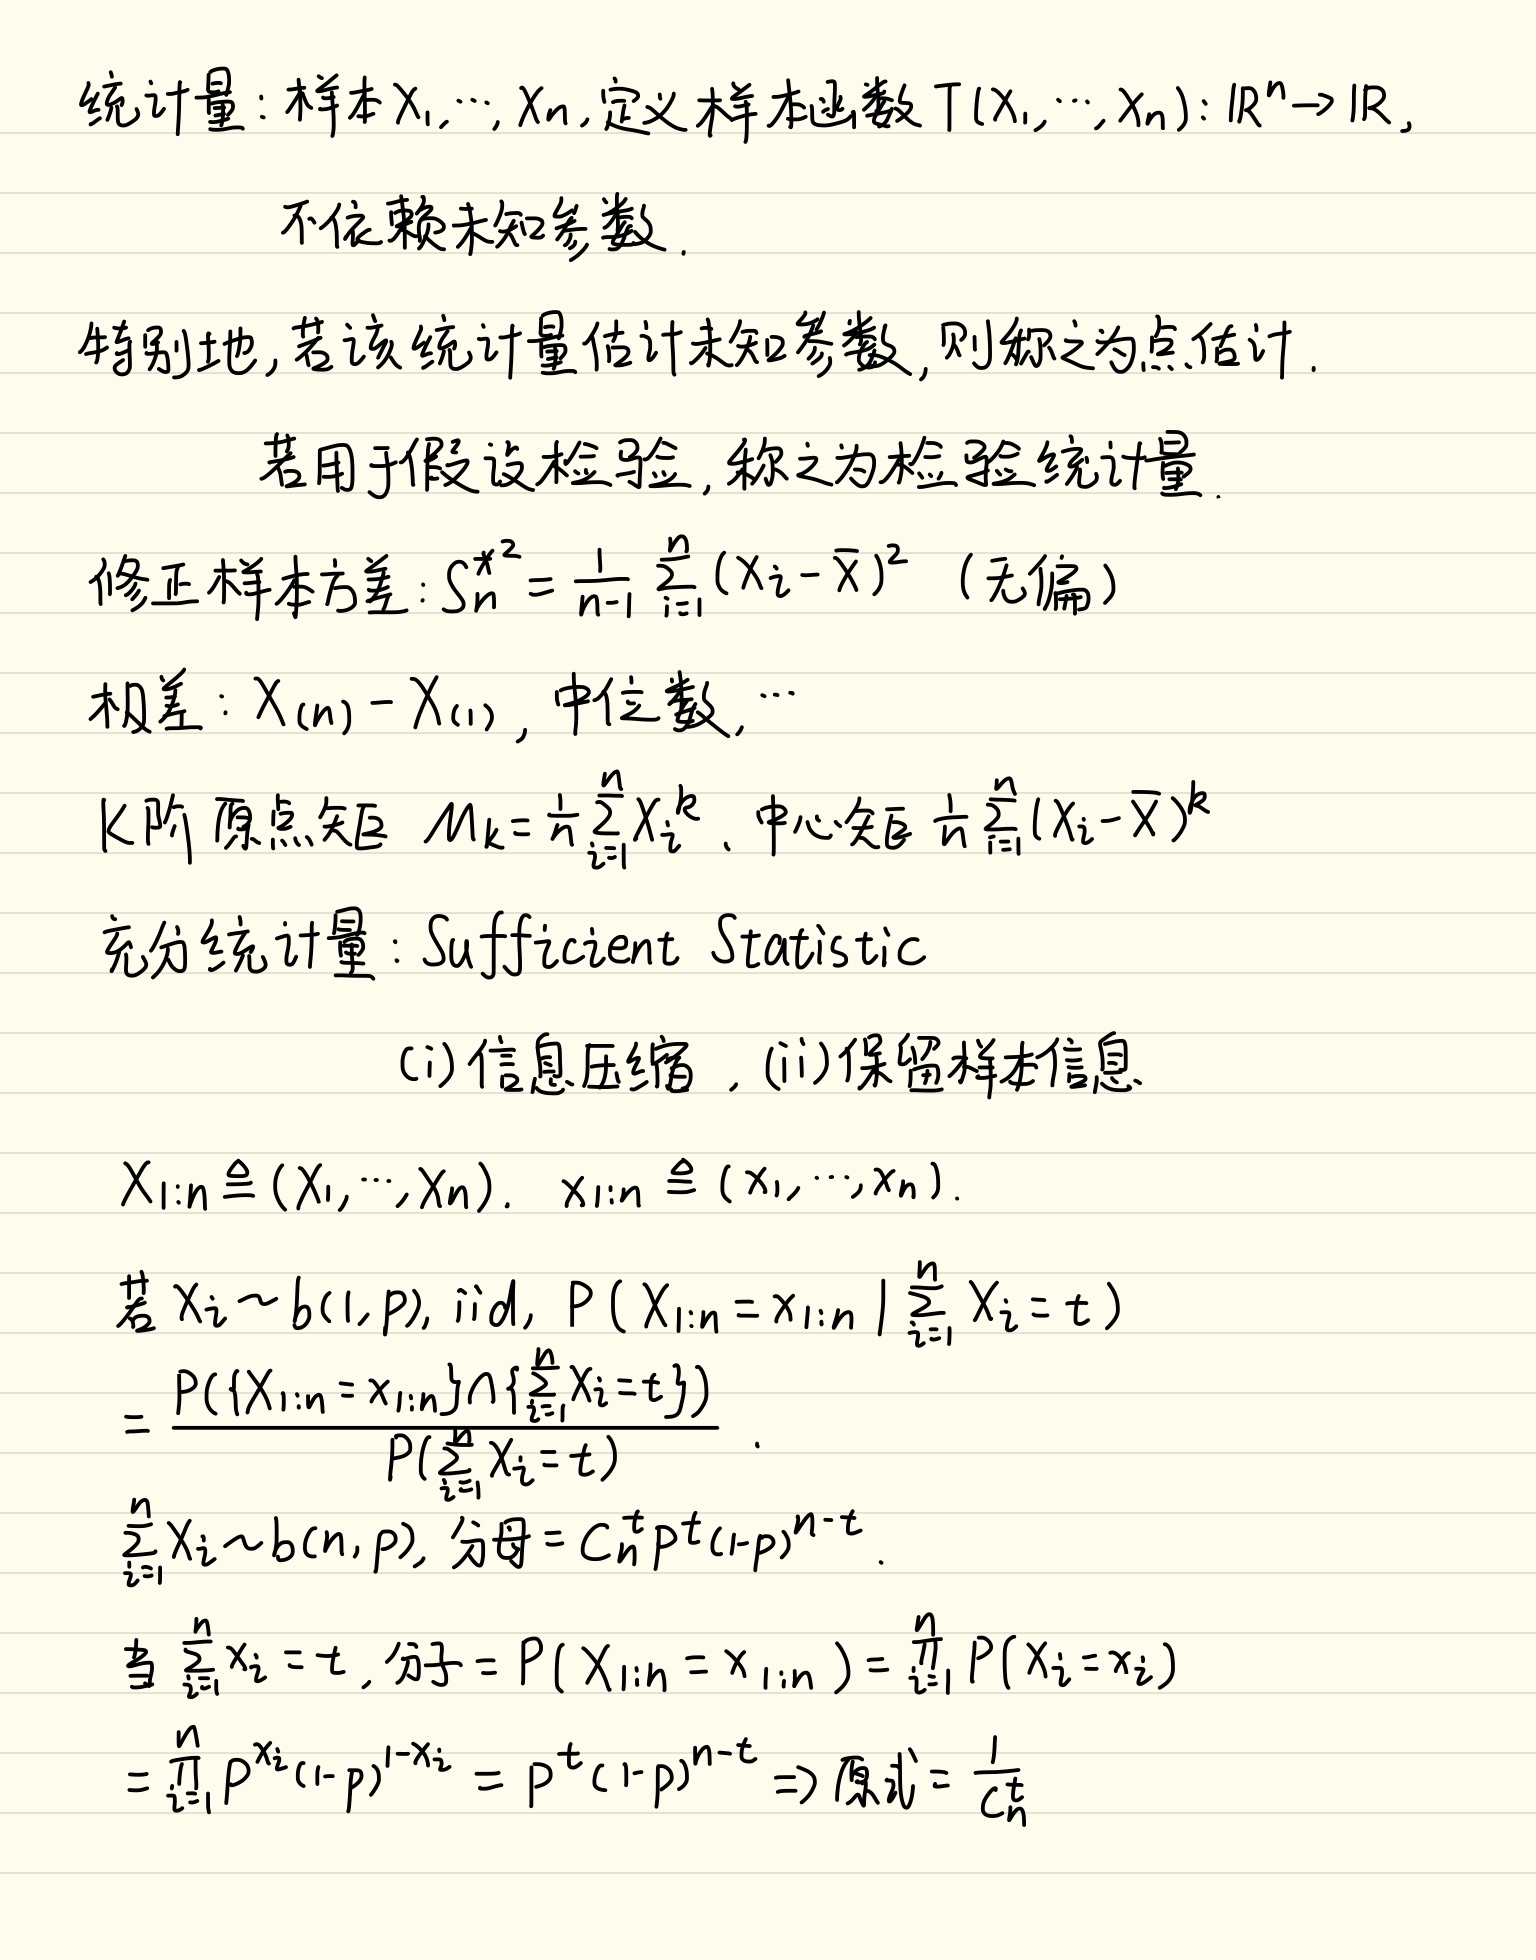 统计量：样本X₁,⋯,Xₙ,定义样本函数T(X₁,⋯,Xₙ):ℝⁿ→ℝ,
不依赖未知参数.
特别地,若该统计量估计未知参数,则称之为点估计.
若用于假设检验,称之为检验统计量.
修正样本方差: $S_n^{*2} = \frac{1}{n-1} \sum_{i=1}^{n} (X_i - \overline{X})^2$ (无偏)
极差: $X_{(n)} - X_{(1)}$, 中位数,⋯
K阶原点矩 $M_k = \frac{1}{n} \sum_{i=1}^{n} X_i^k$、中心矩 $\frac{1}{n} \sum_{i=1}^{n} (X_i - \overline{X})^k$
充分统计量: Sufficient Statistic
(i)信息压缩,(ii)保留样本信息
$X_{1:n} \triangleq (X_1,\cdots,X_n).$ $x_{1:n} \triangleq (x_1,\cdots,x_n).$
若 $X_i \sim b(1,p)$, iid, $P(X_{1:n} = x_{1:n} | \sum_{i=1}^{n} X_i = t)$
$= \frac{P(\{X_{1:n} = x_{1:n}\} \cap \{\sum_{i=1}^{n} X_i = t\})}{P(\sum_{i=1}^{n} X_i = t)}$.
$\sum_{i=1}^{n} X_i \sim b(n,p)$, 分母 $= C_n^t p^t (1-p)^{n-t}$.
当 $\sum_{i=1}^{n} x_i = t$, 分子 $= P(X_{1:n} = x_{1:n}) = \prod_{i=1}^{n} P(X_i = x_i)$
$= \prod_{i=1}^{n} p^{x_i} (1-p)^{1-x_i} = p^t (1-p)^{n-t} \Rightarrow$ 原式 $= \frac{1}{C_n^t}$